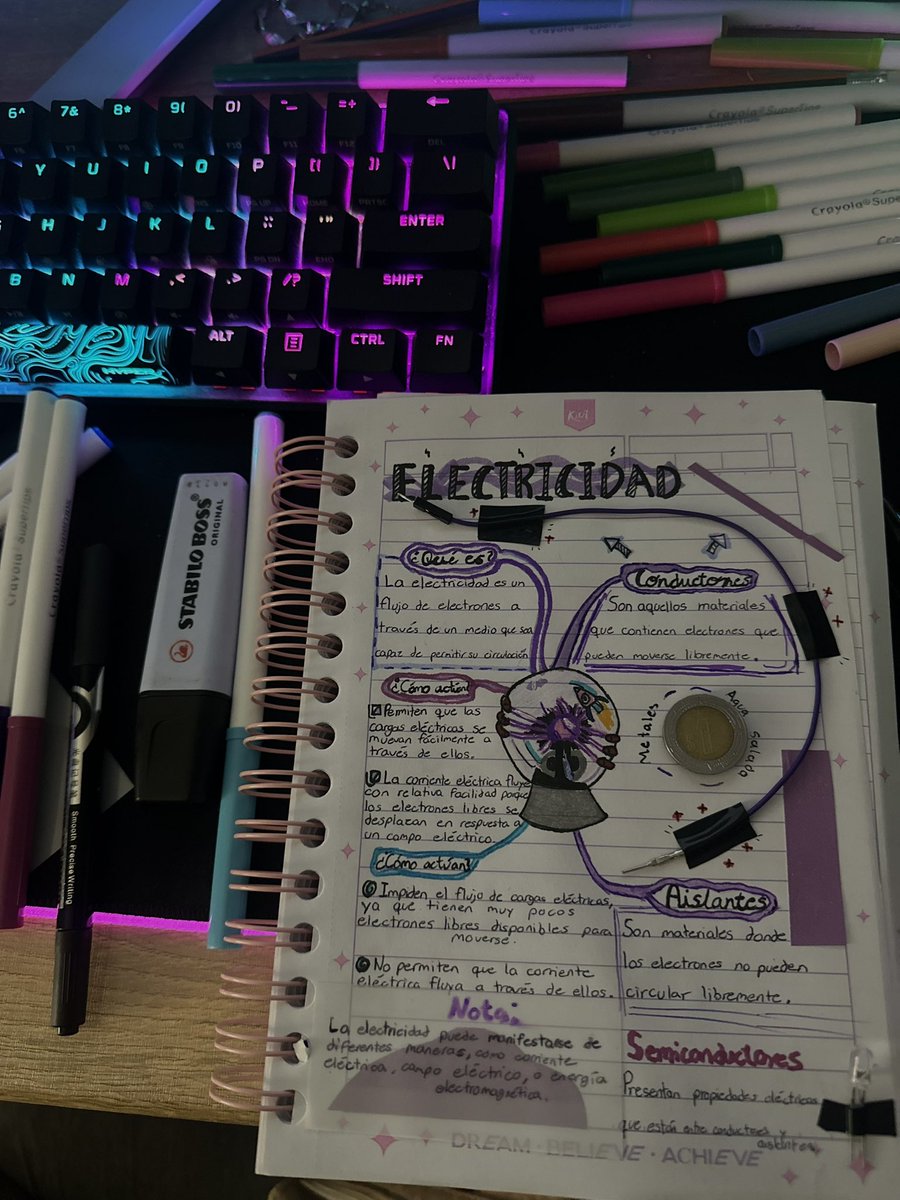 6^ 7& 8* 9( 0) -_ =+
F10 F11 F12 DEL
Y U I O P [{ ]} \|
PG UP HOME PRTSC
H J K L ;: '" ENTER
PG DN END
B N M ,< .> /? SHIFT
HYPERX ALT CTRL FN
Crayola® Superfine
Crayola® Superfine
Crayola® Superfine
Crayola® Superfine
Crayola® Superfine
STABILO BOSS®
ORIGINAL
Smooth Precise Writing
Kiut
ELECTRICIDAD
¿Qué es?
La electricidad es un
flujo de electrones a
través de un medio que sea
capaz de permitir su circulación
Conductores
Son aquellos materiales
que contienen electrones que
pueden moverse libremente.
¿Cómo actúan?
Permiten que las
cargas eléctricas se
muevan fácilmente a
través de ellos.
La corriente eléctrica fluye
con relativa facilidad porque
los electrones libres se
desplazan en respuesta a
un campo eléctrico.
Metales
Agua
Salada
¿Cómo actúan?
Impiden el flujo de cargas eléctricas,
ya que tienen muy pocos
electrones libres disponibles para
moverse.
No permiten que la corriente
eléctrica fluya a través de ellos.
Aislantes
Son materiales donde
los electrones no pueden
circular libremente.
Nota:
La electricidad puede manifestarse de
diferentes maneras, como corriente
eléctrica, campo eléctrico, o energía
electromagnética.
Semiconductores
Presentan propiedades eléctricas
que están entre conductores y
aislantes.
DREAM · BELIEVE · ACHIEVE